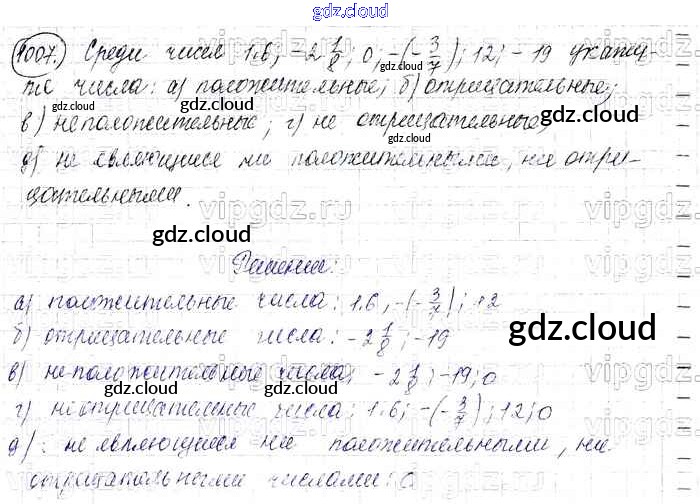 gdz.cloud
1007. Среди чисел 1.6; -2 1/8; 0; -(-3/7); 12; -19 укажи-
те числа: а) положительные; б) отрицательные;
gdz.cloud
gdz.cloud
в) неположительные; г) не отрицательные;
gdz.cloud
gdz.cloud
д) не являющиеся ни положительными, ни отри-
цательными.
vipgdz.ru
vipgdz.ru
gdz.cloud
gdz.cloud
Решение:
а) положительные числа: 1.6, -(-3/7); 12
gdz.cloud
б) отрицательные числа: -2 1/8; -19
gdz.cloud
в) неположительные числа: -2 1/8; -19; 0
gdz.cloud
gdz.cloud
г) неотрицательные числа: 1.6; -(-3/7); 12; 0
д): не являющиеся ни положительными, ни
отрицательными числами: 0
gdz.cloud